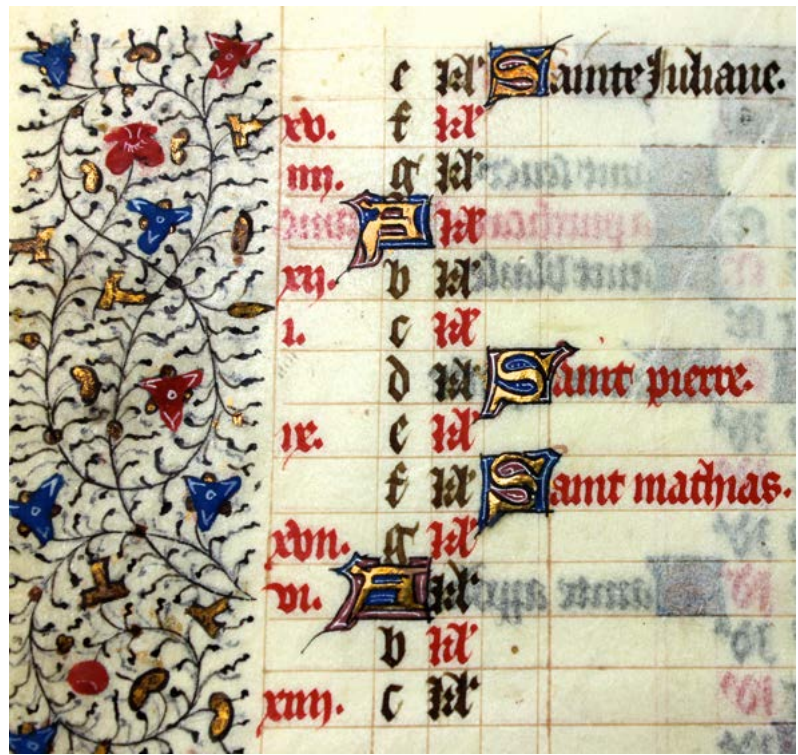 e kl' Sainte Juliane.
xv. f kl'
iiij. g kl'
A kl'
xij. b kl'
i. c kl'
d kl' Saint pierre.
ix. e kl'
f kl' Saint mathias.
xvij. g kl'
vi. A kl'
b kl'
xiiij. c kl'